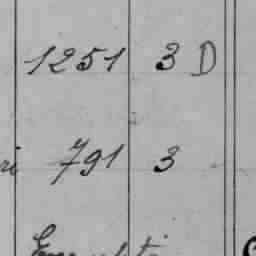 1251 3 D
791 3